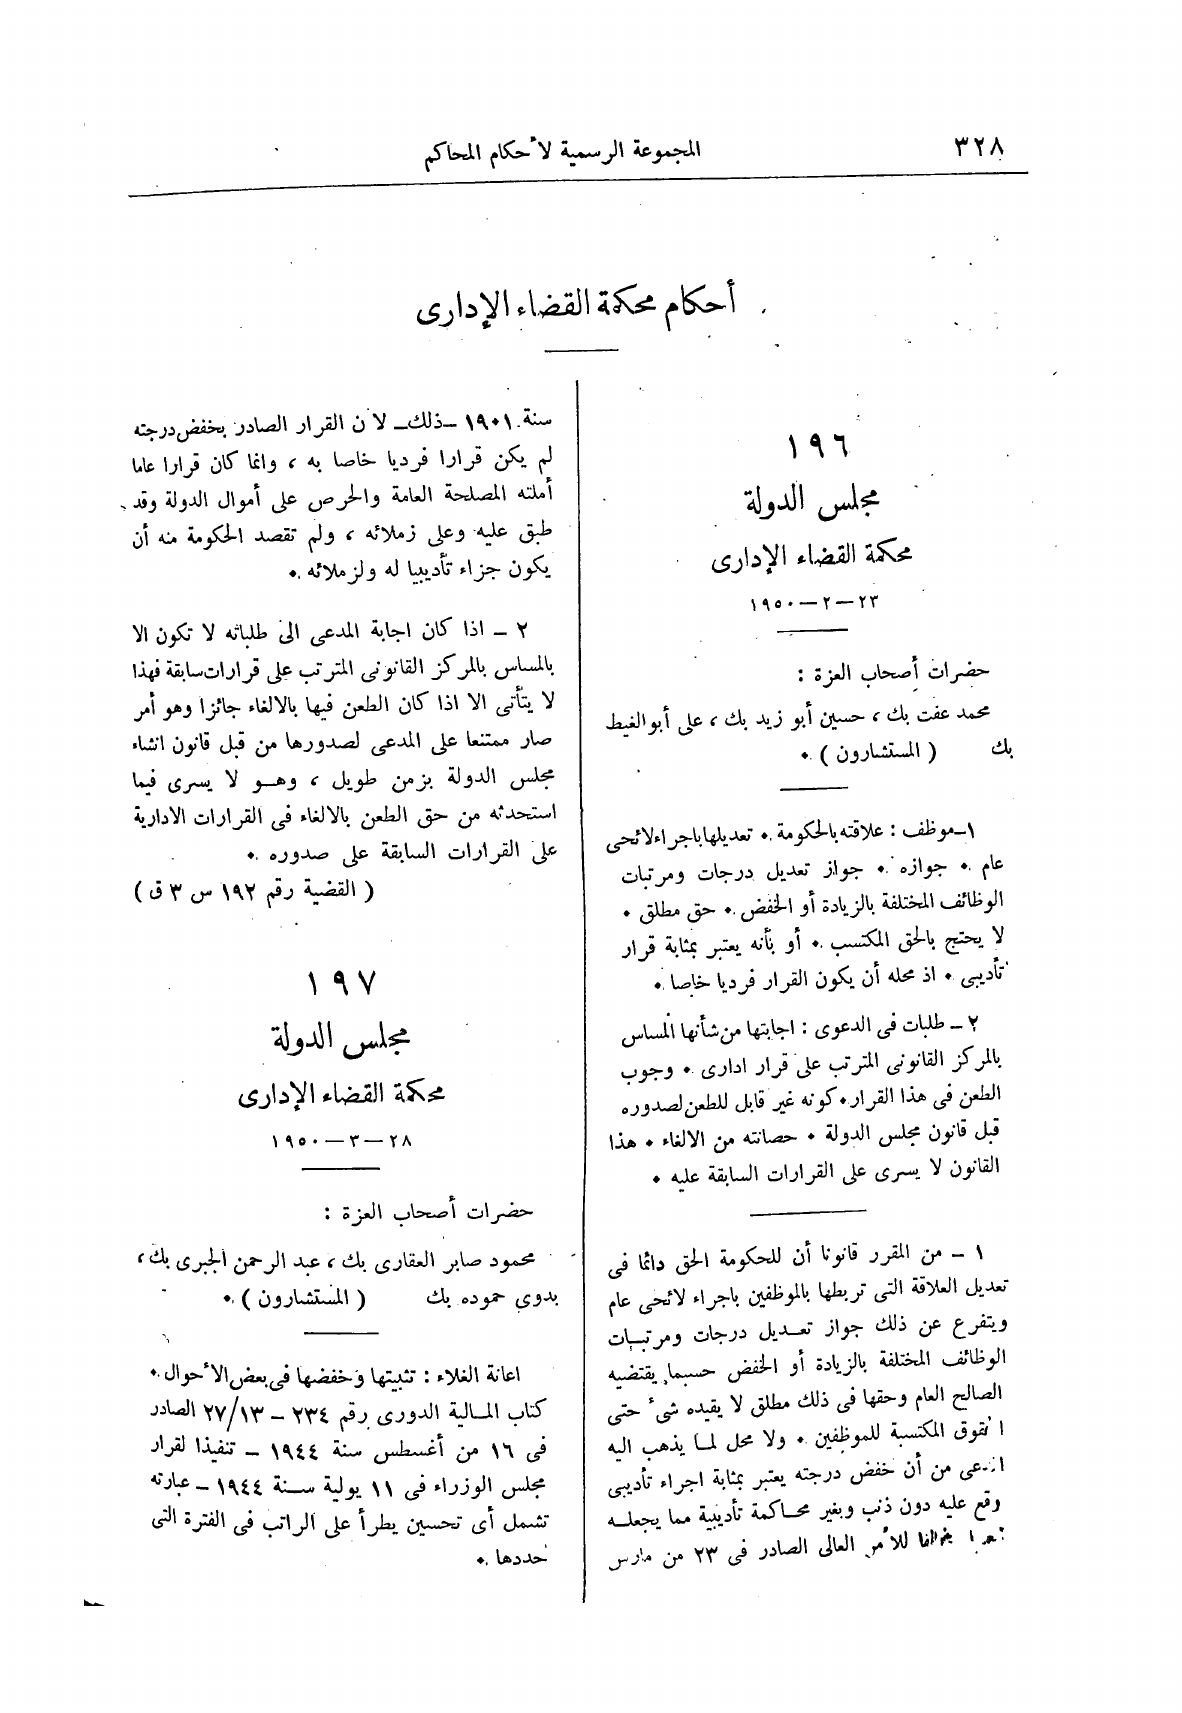 ٣٢٨
المجموعة الرسمية لأحكام المحاكم
أحكام محكمة القضاء الإدارى
١٩٦
مجلس الدولة
محكمة القضاء الإدارى
٢٣ – ٢ – ١٩٥٠
حضرات أصحاب العزة :
محمد عفت بك ، حسين أبو زيد بك ، على أبو الغيط
بك ( المستشارون ) .
١ – موظف : علاقته بالحكومة . تعديلها باجراء لائحى
عام . جوازه . جواز تعديل درجات ومرتبات
الوظائف المختلفة بالزيادة أو الخفض . حق مطلق .
لا يحتج بالحق المكتسب . أو بأنه يعتبر بمثابة قرار
تأديبى . اذ محله أن يكون القرار فرديا خاصا .
٢ – طلبات فى الدعوى : اجابتها من شأنها المساس
بالمركز القانونى المترتب على قرار ادارى . وجوب
الطعن فى هذا القرار . كونه غير قابل للطعن لصدوره
قبل قانون مجلس الدولة . حصانته من الالغاء . هذا
القانون لا يسرى على القرارات السابقة عليه .
١ – من المقرر قانونا أن للحكومة الحق دائما فى
تعديل العلاقة التى تربطها بالموظفين باجراء لائحى عام
ويتفرع عن ذلك جواز تعديل درجات ومرتبات
الوظائف المختلفة بالزيادة أو الخفض حسبما يقتضيه
الصالح العام وحقها فى ذلك مطلق لا يقيده شىء حتى
الحقوق المكتسبة للموظفين . ولا محل لما يذهب اليه
المدعى من أن خفض درجته يعتبر بمثابة اجراء تأديبى
وقع عليه دون ذنب وبغير محاكمة تأديبية مما يجعله
للأمر العالى الصادر فى ٢٣ من مارس
سنة ١٩٠١ – ذلك – لأن القرار الصادر بخفض درجته
لم يكن قرارا فرديا خاصا به ، وانما كان قرارا عاما
أملته المصلحة العامة والحرص على أموال الدولة وقد
طبق عليه وعلى زملائه ، ولم تقصد الحكومة منه أن
يكون جزاء تأديبيا له ولزملائه .
٢ – اذا كان اجابة المدعى الى طلباته لا تكون الا
بالمساس بالمركز القانونى المترتب على قرارات سابقة فهذا
لا يتأتى الا اذا كان الطعن فيها بالالغاء جائزا وهو أمر
صار ممتنعا على المدعى لصدورها من قبل قانون انشاء
مجلس الدولة بزمن طويل ، وهو لا يسرى فيما
استحدثه من حق الطعن بالالغاء فى القرارات الادارية
على القرارات السابقة على صدوره .
( القضية رقم ١٩٢ س ٣ ق )
١٩٧
مجلس الدولة
محكمة القضاء الإدارى
٢٨ – ٣ – ١٩٥٠
حضرات أصحاب العزة :
محمود صابر العقارى بك ، عبد الرحمن الجبرى بك ،
بدوى حموده بك ( المستشارون ) .
اعانة الغلاء : تثبيتها وخفضها فى بعض الأحوال .
كتاب المالية الدورى رقم ٢٣٤ – ٢٧/١٣ الصادر
فى ١٦ من أغسطس سنة ١٩٤٤ – تنفيذا لقرار
مجلس الوزراء فى ١١ يولية سنة ١٩٤٤ – عبارته
تشمل أى تحسين يطرأ على الراتب فى الفترة التى
حددها .